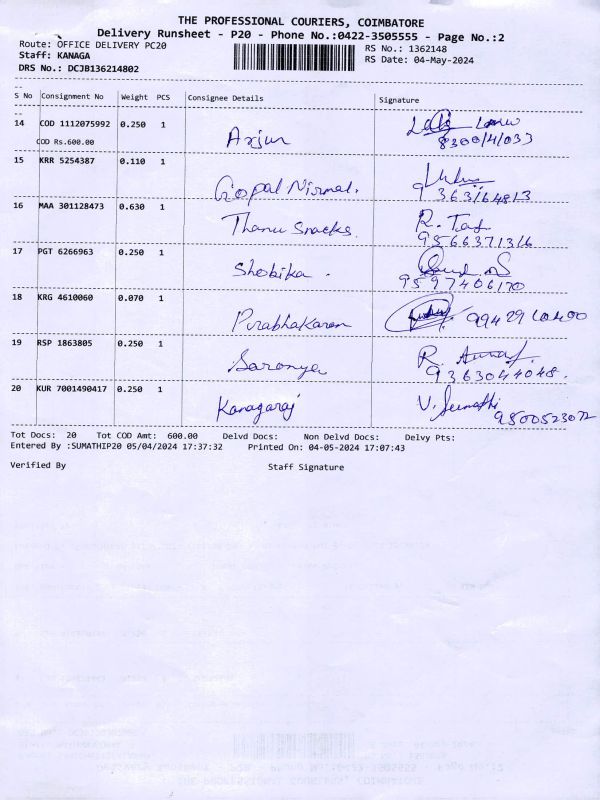 THE PROFESSIONAL COURIERS, COIMBATORE
Delivery Runsheet - P20 - Phone No.:0422-3505555 - Page No.:2
Route: OFFICE DELIVERY PC20 RS No.: 1362148
Staff: KANAGA RS Date: 04-May-2024
DRS No.: DCJB136214802
S No Consignment No Weight PCS Consignee Details Signature
14 COD 1112075992 0.250 1 Arjun
COD Rs.600.00
15 KRR 5254387 0.110 1 Gopal Nirmal.
9363164813
16 MAA 301128473 0.630 1 Thanu Snacks R.
9566371316
17 PGT 6266963 0.250 1 Shobika .
9597406170
18 KRG 4610060 0.070 1 Prabhakaran
19 RSP 1863805 0.250 1 Saronya R.
9363044048.
20 KUR 7001490417 0.250 1 Kanagaraj V. Sumathi
9500523072
Tot Docs: 20 Tot COD Amt: 600.00 Delvd Docs: Non Delvd Docs: Delvy Pts:
Entered By :SUMATHIP20 05/04/2024 17:37:32 Printed On: 04-05-2024 17:07:43
Verified By Staff Signature